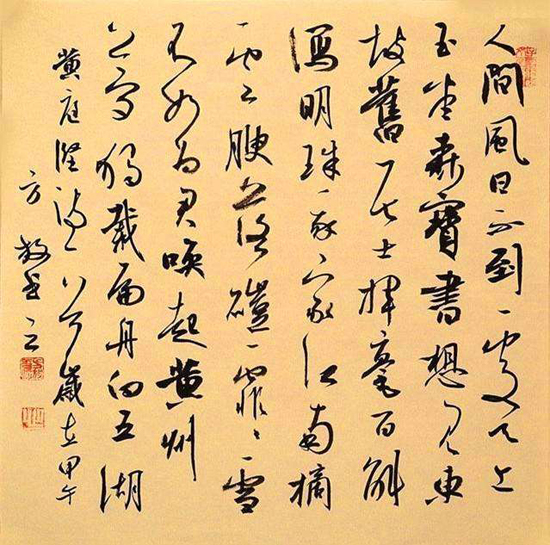 人間風日不到處天上
玉堂森寶書想見東
坡舊居士揮毫百斛
瀉明珠我家江南摘
雲腴落磑霏霏雪
不如為君喚起黄州
夢獨載扁舟向五湖
黄庭堅詩一首歲在甲午
方